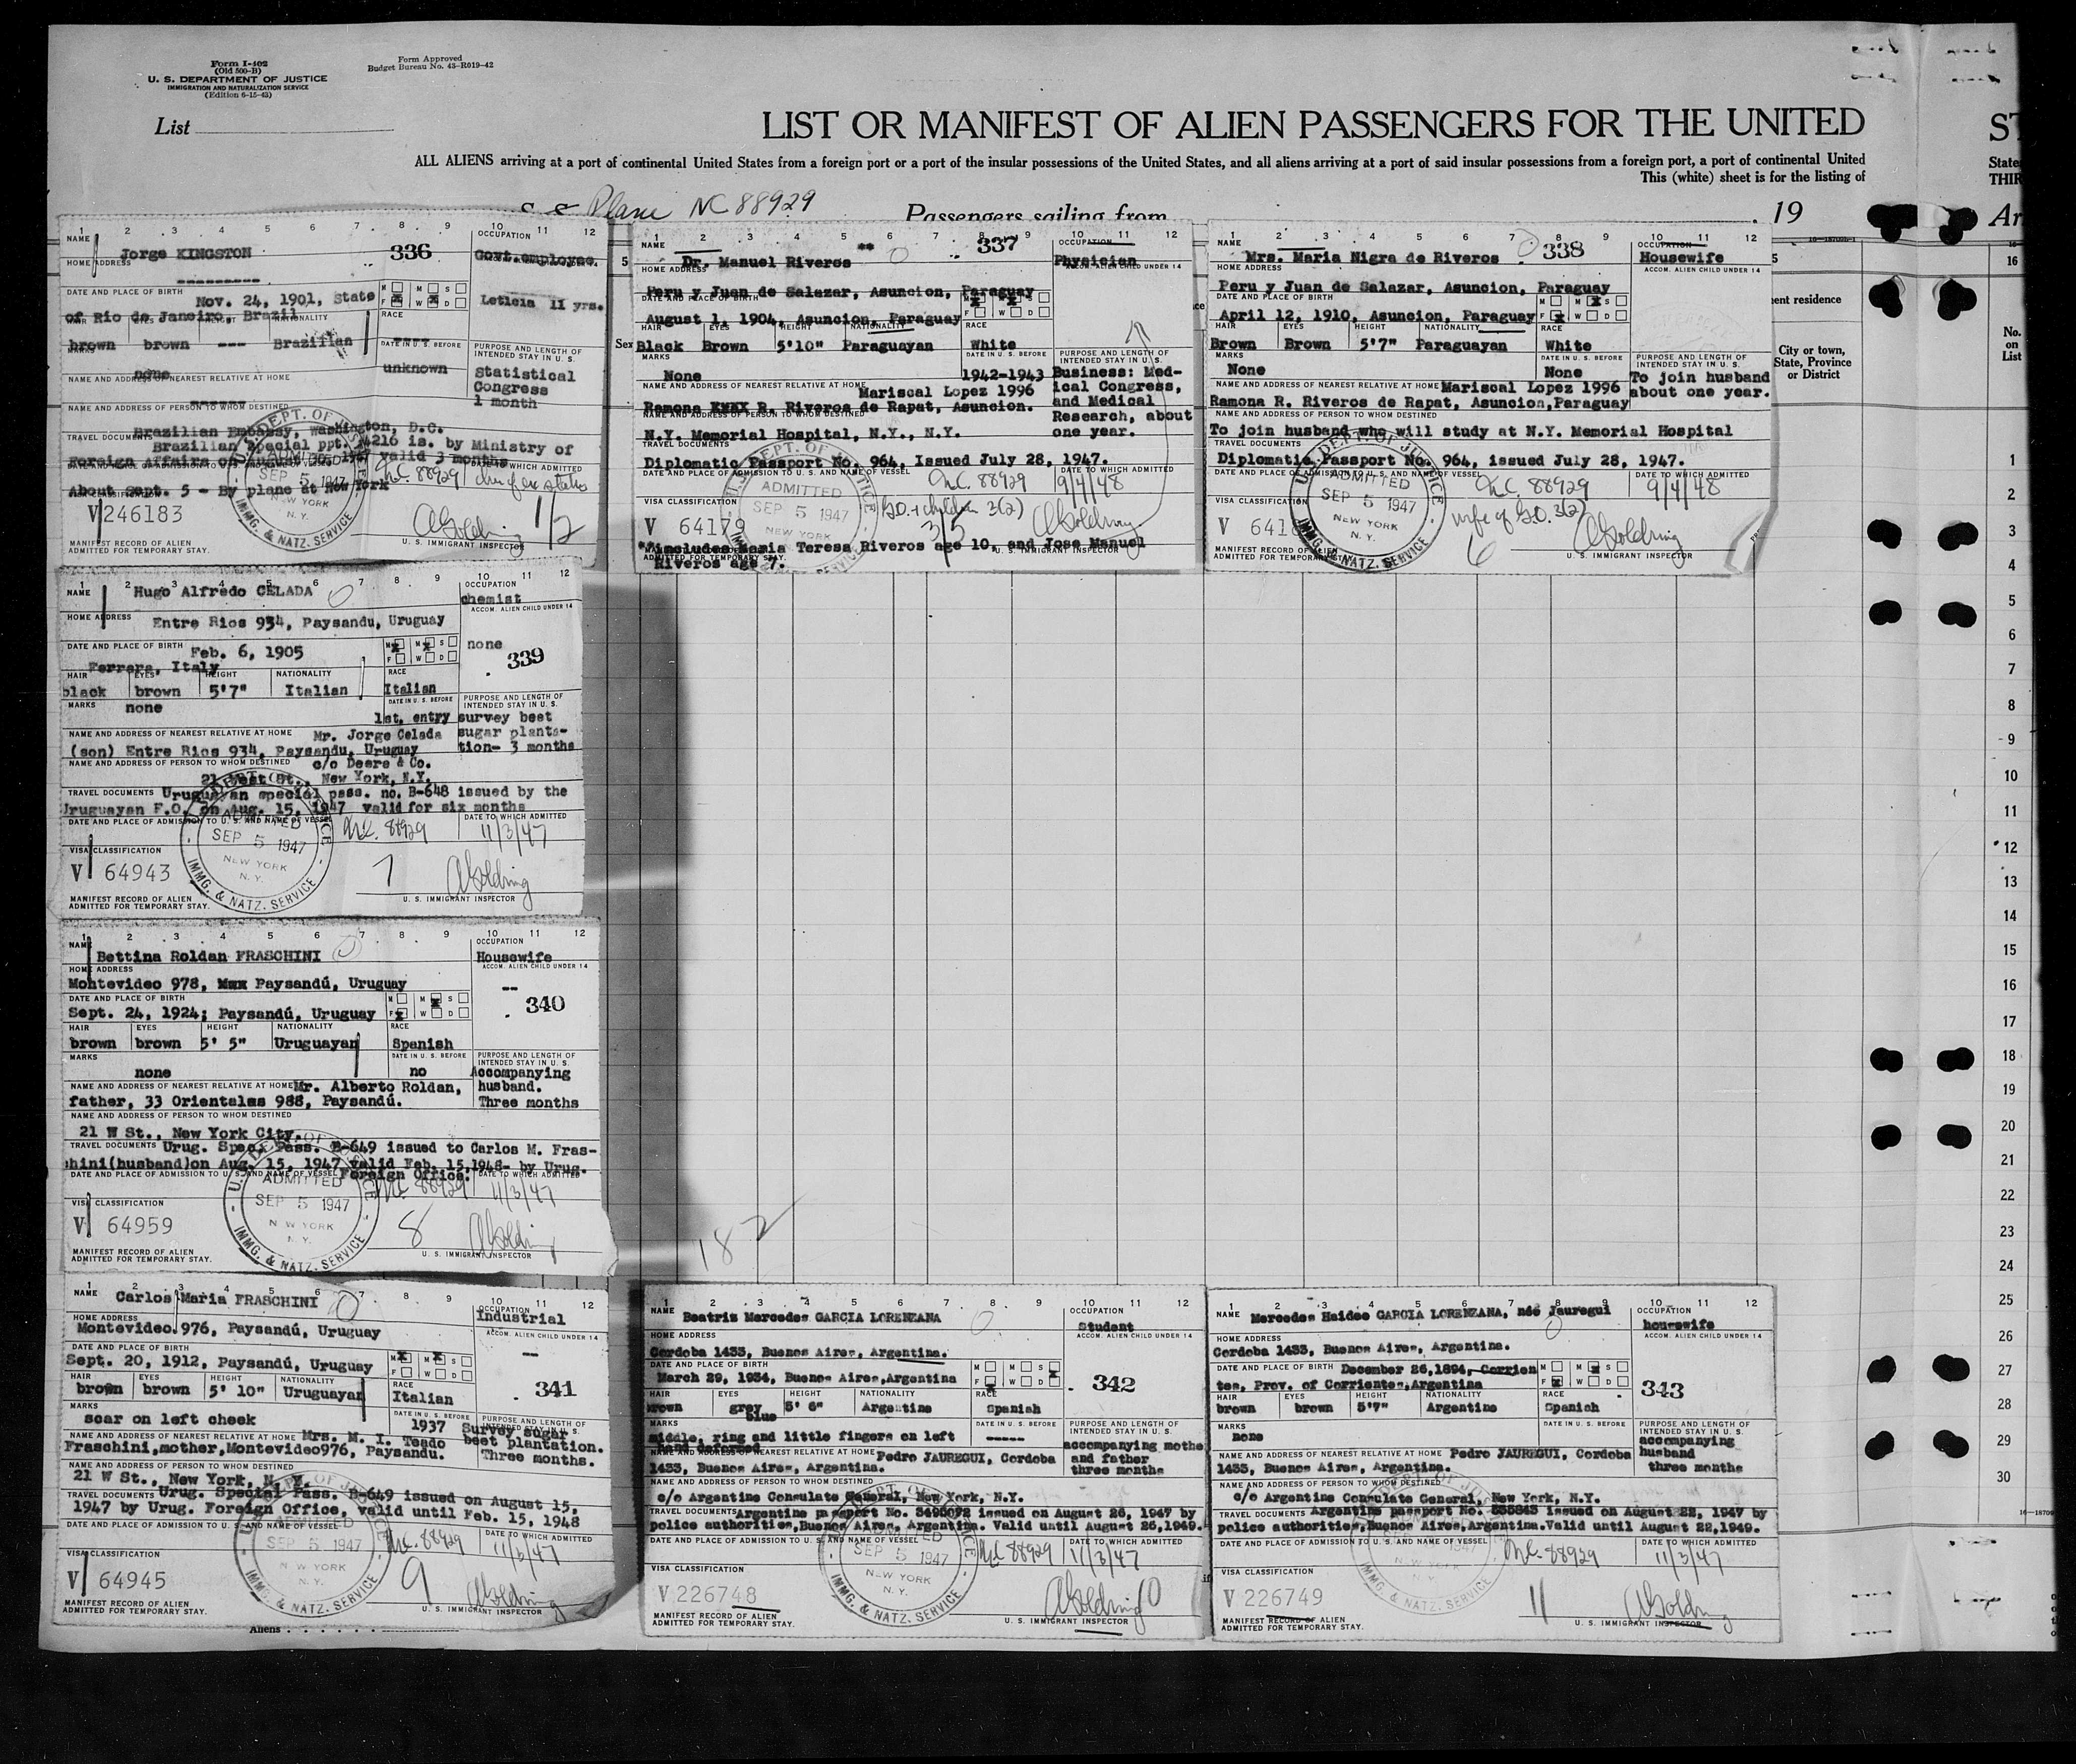 Form I-402
(Old 500-B)
U. S. DEPARTMENT OF JUSTICE
IMMIGRATION AND NATURALIZATION SERVICE
(Edition 6-15-43)
Form Approved
Budget Bureau No. 43-R019-42
List
LIST OR MANIFEST OF ALIEN PASSENGERS FOR THE UNITED
ALL ALIENS arriving at a port of continental United States from a foreign port or a port of the insular possessions of the United States, and all aliens arriving at a port of said insular possessions from a foreign port, a port of continental United
This (white) sheet is for the listing of
Plane NC 88929
Passengers sailing from
, 19
1 2 3 4 5 6 7 8 9 10 11 12
NAME Jorge KINGSTON
336
OCCUPATION
Govt. employee.
HOME ADDRESS
DATE AND PLACE OF BIRTH
Nov. 24, 1901, State
of Rio de Janeiro, Brazil
Leticia 11 yrs.
HAIR EYES HEIGHT NATIONALITY RACE
brown brown --- Brazilian
DATE IN U. S. BEFORE
unknown
PURPOSE AND LENGTH OF
INTENDED STAY IN U. S.
Statistical
Congress
1 month
MARKS
none
NAME AND ADDRESS OF NEAREST RELATIVE AT HOME
NAME AND ADDRESS OF PERSON TO WHOM DESTINED
Brazilian Embassy, Washington, D.C.
TRAVEL DOCUMENTS
Brazilian Special ppt. 4216 is. by Ministry of
Foreign Affairs on August 1947 valid 3 months
NC. 88929
About Sept. 5 - By plane at New York
V 246183
ADMITTED
SEP 5 1947
NEW YORK
N. Y.
IMMG. & NATZ. SERVICE
AGoldring
1/2
U. S. IMMIGRANT INSPECTOR
MANIFEST RECORD OF ALIEN
ADMITTED FOR TEMPORARY STAY.
1 2 3 4 5 6 7 8 9 10 11 12
NAME
Dr. Manuel Riveros
**
337
OCCUPATION
Physician
ACCOM. ALIEN CHILD UNDER 14
HOME ADDRESS
Peru y Juan de Salazar, Asuncion, Paraguay
DATE AND PLACE OF BIRTH
August 1, 1904, Asuncion, Paraguay
HAIR EYES HEIGHT NATIONALITY RACE
Black Brown 5'10" Paraguayan White
MARKS
None
DATE IN U. S. BEFORE
1942-1943
PURPOSE AND LENGTH OF
INTENDED STAY IN U. S.
Business: Med-
ical Congress,
and Medical
Research, about
one year.
NAME AND ADDRESS OF NEAREST RELATIVE AT HOME
Mariscal Lopez 1996
Ramona R. Riveros de Rapat, Asuncion.
NAME AND ADDRESS OF PERSON TO WHOM DESTINED
N.Y. Memorial Hospital, N.Y., N.Y.
TRAVEL DOCUMENTS
Diplomatic Passport No. 964, Issued July 28, 1947.
DATE AND PLACE OF ADMISSION TO U. S. AND NAME OF VESSEL
DATE TO WHICH ADMITTED
NC. 88929 9/4/48
VISA CLASSIFICATION
V 64179
ADMITTED
SEP 5 1947
NEW YORK
G.O. + children 3(2)
3/5
AGoldring
*includes Maria Teresa Riveros age 10, and Jose Manuel
Riveros age 7.
U. S. IMMIGRANT INSPECTOR
1 2 3 4 5 6 7 8 9 10 11 12
NAME
Mrs. Maria Nigra de Riveros
338
OCCUPATION
Housewife
ACCOM. ALIEN CHILD UNDER 14
HOME ADDRESS
Peru y Juan de Salazar, Asuncion, Paraguay
DATE AND PLACE OF BIRTH
April 12, 1910, Asuncion, Paraguay
HAIR EYES HEIGHT NATIONALITY RACE
Brown Brown 5'7" Paraguayan White
MARKS
None
DATE IN U. S. BEFORE
None
PURPOSE AND LENGTH OF
INTENDED STAY IN U. S.
To join husband
about one year.
NAME AND ADDRESS OF NEAREST RELATIVE AT HOME Mariscal Lopez 1996
Ramona R. Riveros de Rapat, Asuncion, Paraguay
NAME AND ADDRESS OF PERSON TO WHOM DESTINED
To join husband who will study at N.Y. Memorial Hospital
TRAVEL DOCUMENTS
Diplomatic Passport No. 964, issued July 28, 1947.
DATE AND PLACE OF ADMISSION TO U. S. AND NAME OF VESSEL
DATE TO WHICH ADMITTED
NC. 88929 9/4/48
VISA CLASSIFICATION
V 641
U. S. DEPT. OF JUSTICE
ADMITTED
SEP 5 1947
NEW YORK
N. Y.
IMMG. & NATZ. SERVICE
wife of G.O. 3(2)
6
AGoldring
U. S. IMMIGRANT INSPECTOR
MANIFEST RECORD OF ALIEN
ADMITTED FOR TEMPORARY STAY.
1 2 3 4 5 6 7 8 9 10 11 12
NAME Hugo Alfredo CELADA
OCCUPATION
chemist
ACCOM. ALIEN CHILD UNDER 14
none
339
HOME ADDRESS
Entre Rios 934, Paysandu, Uruguay
DATE AND PLACE OF BIRTH Feb. 6, 1905
Ferrara, Italy
HAIR EYES HEIGHT NATIONALITY RACE
black brown 5'7" Italian Italian
MARKS none
DATE IN U. S. BEFORE
1st. entry
PURPOSE AND LENGTH OF
INTENDED STAY IN U. S.
survey beet
sugar planta-
tion- 3 months
NAME AND ADDRESS OF NEAREST RELATIVE AT HOME Mr. Jorge Celada
(son) Entre Rios 934, Paysandu, Uruguay
NAME AND ADDRESS OF PERSON TO WHOM DESTINED c/o Deere & Co.
21 West St., New York, N.Y.
TRAVEL DOCUMENTS Uruguayan special pass. no. B-648 issued by the
Uruguayan F.O. on Aug. 15, 1947 valid for six months
DATE AND PLACE OF ADMISSION TO U. S. AND NAME OF VESSEL
DATE TO WHICH ADMITTED
NC. 88929 11/3/47
VISA CLASSIFICATION
V 64943
ADMITTED
SEP 5 1947
NEW YORK
N. Y.
IMMG. & NATZ. SERVICE
7
AGoldring
U. S. IMMIGRANT INSPECTOR
MANIFEST RECORD OF ALIEN
ADMITTED FOR TEMPORARY STAY.
1 2 3 4 5 6 7 8 9 10 11 12
NAME
Bettina Roldan FRASCHINI
OCCUPATION
Housewife
ACCOM. ALIEN CHILD UNDER 14
--
340
HOME ADDRESS
Montevideo 978, Paysandú, Uruguay
DATE AND PLACE OF BIRTH
Sept. 24, 1924; Paysandú, Uruguay
HAIR EYES HEIGHT NATIONALITY RACE
brown brown 5' 5" Uruguayan Spanish
MARKS
none
DATE IN U. S. BEFORE
no
PURPOSE AND LENGTH OF
INTENDED STAY IN U. S
Accompanying
husband.
Three months
NAME AND ADDRESS OF NEAREST RELATIVE AT HOME Mr. Alberto Roldan,
father, 33 Orientales 988, Paysandú.
NAME AND ADDRESS OF PERSON TO WHOM DESTINED
21 W St., New York City.
TRAVEL DOCUMENTS Urug. Spec. Pass. B-649 issued to Carlos M. Fras-
chini(husband)on Aug. 15, 1947 valid Feb. 15, 1948- by Urug.
Foreign Office.
DATE TO WHICH ADMITTED
NC. 88929 11/3/47
VISA CLASSIFICATION
V 64959
ADMITTED
SEP 5 1947
NEW YORK
N. Y.
IMMG. & NATZ. SERVICE
8
AGoldring
U. S. IMMIGRANT INSPECTOR
MANIFEST RECORD OF ALIEN
ADMITTED FOR TEMPORARY STAY.
182
1 2 3 4 5 6 7 8 9 10 11 12
NAME Carlos Maria FRASCHINI
OCCUPATION
Industrial
ACCOM. ALIEN CHILD UNDER 14
--
341
HOME ADDRESS
Montevideo 976, Paysandú, Uruguay
DATE AND PLACE OF BIRTH
Sept. 20, 1912, Paysandú, Uruguay
HAIR EYES HEIGHT NATIONALITY RACE
brown brown 5' 10" Uruguayan Italian
MARKS
scar on left cheek
DATE IN U. S. BEFORE
1937
PURPOSE AND LENGTH OF
Survey sugar
beet plantation.
Three months.
NAME AND ADDRESS OF NEAREST RELATIVE AT HOME Mrs. M. I. Teado
Fraschini,mother,Montevideo976, Paysandu.
NAME AND ADDRESS OF PERSON TO WHOM DESTINED
21 W St., New York, N. Y.
TRAVEL DOCUMENTS Urug. Special Pass. B-649 issued on August 15,
1947 by Urug. Foreign Office, valid until Feb. 15, 1948
DATE AND PLACE OF ADMISSION TO U. S. AND NAME OF VESSEL
DATE TO WHICH ADMITTED
NC. 88929 11/3/47
VISA CLASSIFICATION
V 64945
SEP 5 1947
NEW YORK
N. Y.
IMMG. & NATZ. SERVICE
9
AGoldring
U. S. IMMIGRANT INSPECTOR
MANIFEST RECORD OF ALIEN
ADMITTED FOR TEMPORARY STAY.
Aliens
1 2 3 4 5 6 7 8 9 10 11 12
NAME
Beatriz Mercedes GARCIA LORENZANA
OCCUPATION
Student
ACCOM. ALIEN CHILD UNDER 14
342
HOME ADDRESS
Cordoba 1433, Buenos Aires, Argentina.
DATE AND PLACE OF BIRTH
March 29, 1934, Buenos Aires,Argentina
HAIR EYES HEIGHT NATIONALITY RACE
brown grey blue 5' 6" Argentine Spanish
MARKS
middle, ring and little fingers on left
hand deformed
DATE IN U. S. BEFORE
-----
PURPOSE AND LENGTH OF
INTENDED STAY IN U. S.
accompanying mothe
and father
three months
NAME AND ADDRESS OF NEAREST RELATIVE AT HOME Pedro JAUREGUI, Cordoba
1433, Buenos Aires, Argentina.
NAME AND ADDRESS OF PERSON TO WHOM DESTINED
c/o Argentine Consulate General, New York, N.Y.
TRAVEL DOCUMENTS Argentine passport No. issued on August 26, 1947 by
police authorities,Buenos Aires, Argentina. Valid until August 26,1949.
DATE AND PLACE OF ADMISSION TO U. S. AND NAME OF VESSEL
DATE TO WHICH ADMITTED
NC 88929 11/3/47
VISA CLASSIFICATION
V 226748
SEP 5 1947
NEW YORK
N. Y.
IMMG. & NATZ. SERVICE
AGoldring 10
U. S. IMMIGRANT INSPECTOR
MANIFEST RECORD OF ALIEN
ADMITTED FOR TEMPORARY STAY.
1 2 3 4 5 6 7 8 9 10 11 12
NAME Mercedes Haidee GARCIA LORENZANA, née Jauregui
OCCUPATION
housewife
ACCOM. ALIEN CHILD UNDER 14
343
HOME ADDRESS
Cordoba 1433, Buenos Aires, Argentina.
DATE AND PLACE OF BIRTH December 26,1894,-Corrien
tes, Prov. of Corrientes,Argentina
HAIR EYES HEIGHT NATIONALITY RACE
brown brown 5'7" Argentine Spanish
MARKS
none
DATE IN U. S. BEFORE
PURPOSE AND LENGTH OF
INTENDED STAY IN U. S.
accompanying
husband
three months
NAME AND ADDRESS OF NEAREST RELATIVE AT HOME Pedro JAUREGUI, Cordoba
1433, Buenos Aires, Argentina.
NAME AND ADDRESS OF PERSON TO WHOM DESTINED
c/o Argentine Consulate General, New York, N.Y.
TRAVEL DOCUMENTS Argentine passport No. issued on August 22, 1947 by
police authorities,Buenos Aires,Argentina.Valid until August 22,1949.
DATE AND PLACE OF ADMISSION TO U. S. AND NAME OF VESSEL
DATE TO WHICH ADMITTED
NC. 88929 11/3/47
VISA CLASSIFICATION
V 226749
11
AGoldring
U. S. IMMIGRANT INSPECTOR
MANIFEST RECORD OF ALIEN
ADMITTED FOR TEMPORARY STAY.
ent residence
City or town,
State, Province
or District
ST
State
THIR
Ar
16
No.
on
List
1
2
3
4
5
6
7
8
9
10
11
12
13
14
15
16
17
18
19
20
21
22
23
24
25
26
27
28
29
30
16-18709